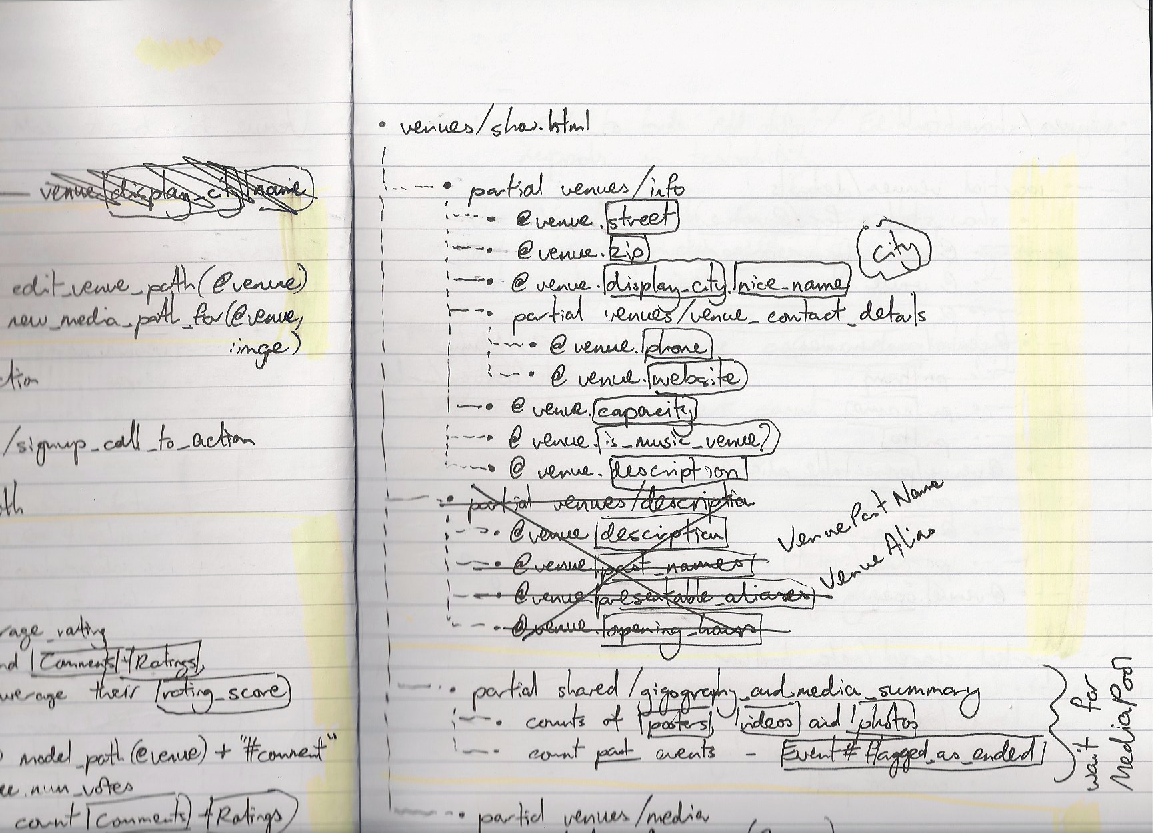 venue.display_city name
edit_venue_path(@venue)
new_media_path_for(@venue,
:imge)
/signup_call_to_action
Comments + Ratings
average their rating_score
model_path(@venue) + "#comment"
num_votes
count Comments + Ratings
• venues/show.html
• partial venues/info
• @venue.street
• @venue.zip
city
• @venue.display_city.nice_name
• partial venues/venue_contact_details
• @venue.phone
• @venue.website
• @venue.capacity
• @venue.is_music_venue?
• @venue.description
• partial venues/description
• @venue.description
VenuePastName
• @venue.past_names
VenueAlias
• @venue.presentable_aliases
• @venue.opening_hours
• partial shared/gigography_and_media_summary
• counts of posters, videos and photos
• count past events - Event#flagged_as_ended
wait for
MediaPool
• partial venues/media